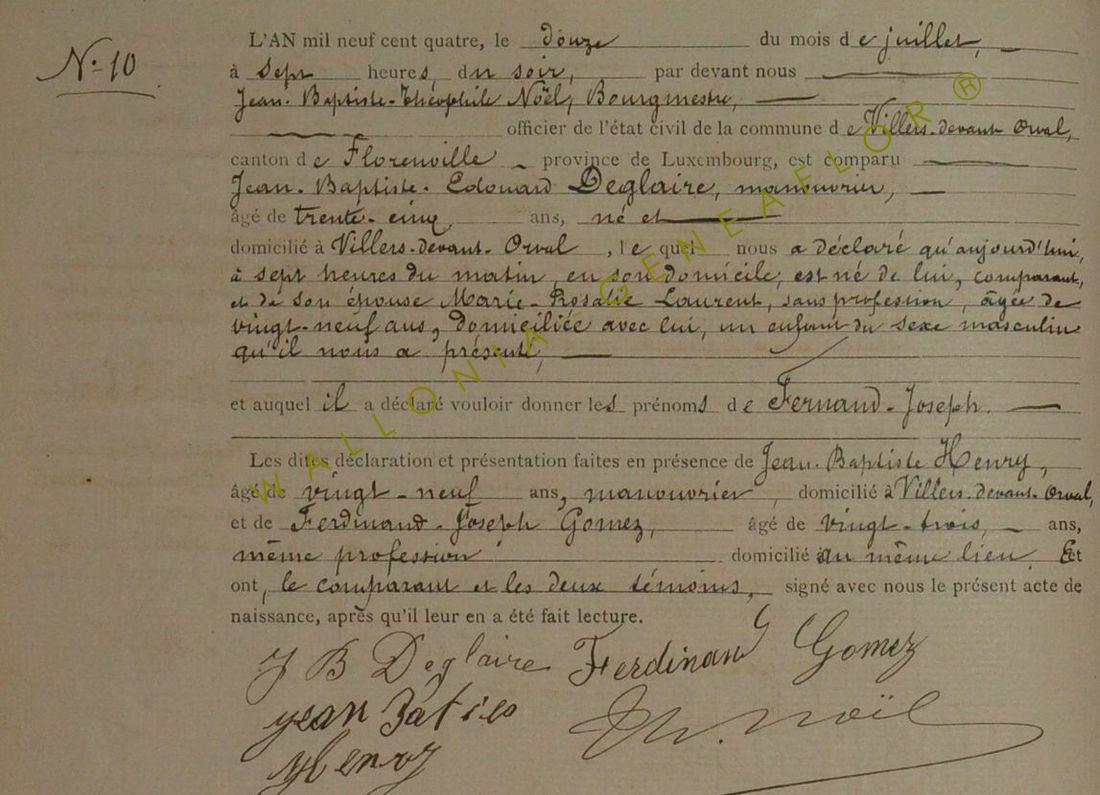 N.º 10
L'AN mil neuf cent quatre, le douze du mois de juillet,
à sept heures, du soir, par devant nous
Jean-Baptiste-Théophile Noël, Bourgmestre,
officier de l'état civil de la commune de Villers-devant-Orval,
canton de Florenville province de Luxembourg, est comparu
Jean-Baptiste-Edouard Deglaire, manouvrier,
âgé de trente-cinq ans, né et
domicilié à Villers-devant-Orval, le quel nous a déclaré qu'aujourd'hui,
à sept heures du matin, en son domicile, est né de lui, comparant,
et de son épouse Marie-Rosalie Laurent, sans profession, âgée de
vingt-neuf ans, domiciliée avec lui, un enfant du sexe masculin
qu'il nous a présenté,
et auquel il a déclaré vouloir donner les prénoms de Fernand-Joseph.
Les dites déclaration et présentation faites en présence de Jean-Baptiste Henry,
âgé de vingt-neuf ans, manouvrier, domicilié à Villers-devant-Orval,
et de Ferdinand-Joseph Gomez, âgé de vingt-trois, ans,
même profession domicilié au même lieu. Et
ont, le comparant et les deux témoins, signé avec nous le présent acte de
naissance, après qu'il leur en a été fait lecture.
J B Deglaire Ferdinand Gomez
jean Baties Th. Noël
Henry
WALLONIA GENEAFLOR ®